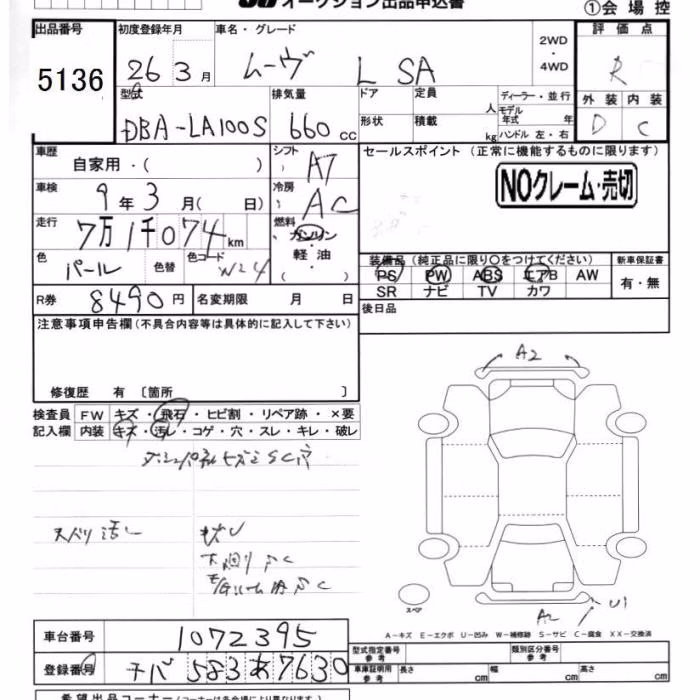 オークション出品申込書
①会場控
出品番号 初度登録年月 車名・グレード 2WD・4WD 評価点
5136 26年3月 ムーヴ L SA R
型式 排気量 ドア 定員 人 ディーラー・並行 外装 内装
DBA-LA100S 660cc 形状 積載 kg モデル年式 年 ハンドル 左・右 D C
車歴 自家用・( ) シフト AT セールスポイント (正常に機能するものに限ります)
車検 9年3月( 日) 冷房 AC NOクレーム・売切
走行 7万1千074km 燃料 ガソリン・軽油・( )
色 パール 色替 色コード W24 装備品 (純正品に限り○をつけてください) 新車保証書
PS PW ABS エアB AW 有・無
SR ナビ TV カワ
R券 8490円 名変期限 月 日 後日品
注意事項申告欄(不具合内容等は具体的に記入して下さい)
修復歴 有 〔箇所 〕
検査員 FW キズ・飛石・ヒビ割・リペア跡・×要
記入欄 内装 キズ・汚レ・コゲ・穴・スレ・キレ・破レ
A2
A2 U1
スペア
A-キズ E-エクボ U-凹み W-補修跡 S-サビ C-腐食 XX-交換済
車台番号 1072395 型式指定番号 参考 類別区分番号 参考
登録番号 チバ 583 あ 7630 車庫証明用 参考 長さ cm 幅 cm 高さ cm
希望出品コーナー